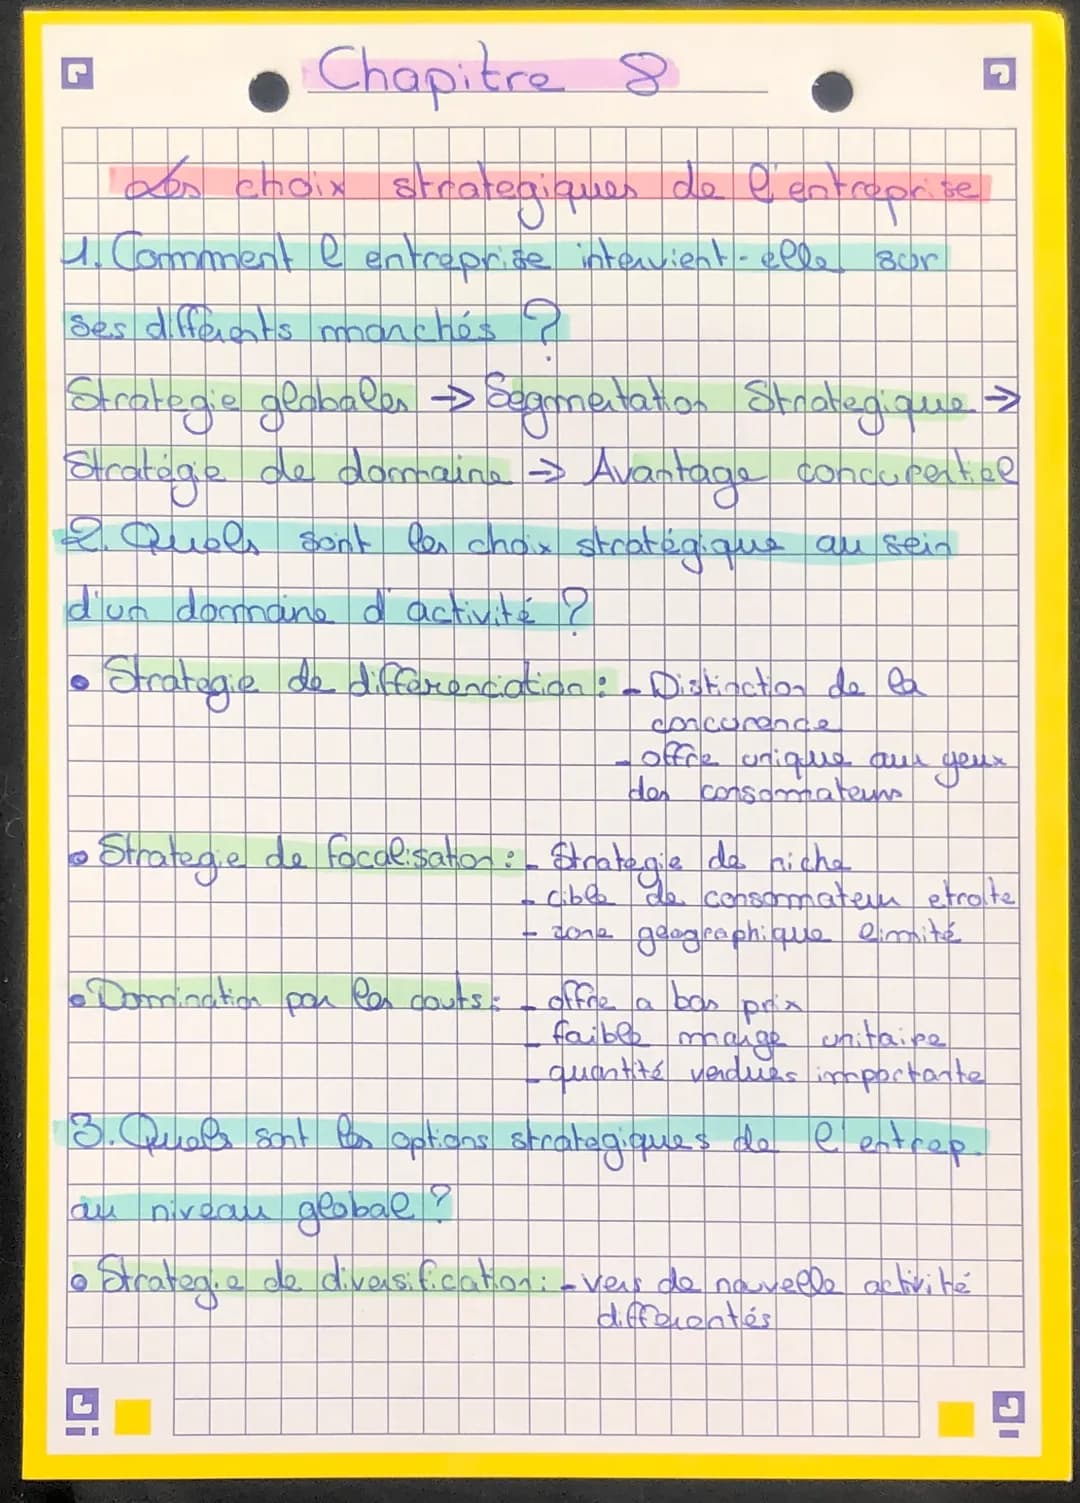 Chapitre 8
Les choix strategiques de l'entreprise
1. Comment l'entreprise intervient-elle sur
ses différents marchés ?
Strategie globales → Segmentation Strategique →
Stratégie de domaine → Avantage concurentiel
2. Quels sont les choix stratégique au sein
d'un domaine d'activité ?
• Strategie de différenciation : - Distinction de la
concurence
- offre unique aux yeux
des consommateurs
• Strategie de focalisation : - Strategie de niche
- cible de consommateur etroite
- zone geographique limité
• Domination par les couts : - offre a bas prix
- faible marge unitaire
- quantité vendues importante
3. Quels sont les options strategiques de l'entrep.
au niveau global ?
• Strategie de diversification : - vers de nouvelle activité
differentés